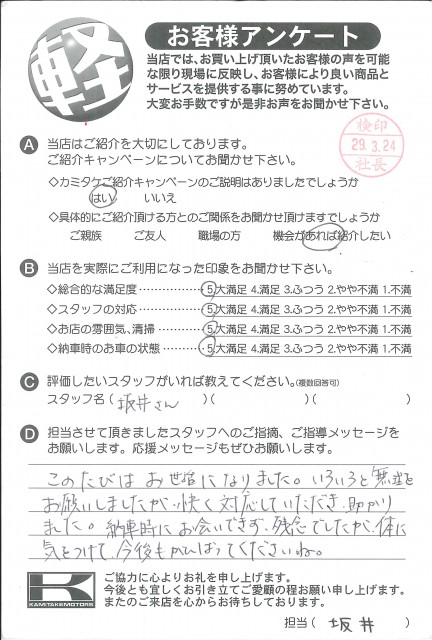 軽
お客様アンケート
当店では、お買い上げ頂いたお客様の声を可能
な限り現場に反映し、お客様により良い商品と
サービスを提供する事に努めています。
大変お手数ですが是非お声をお聞かせ下さい。
検印
29.3.24
社長
A 当店はご紹介を大切にしております。
ご紹介キャンペーンについてお聞かせ下さい。
◇カミタケご紹介キャンペーンのご説明はありましたでしょうか
はい いいえ
◇具体的にご紹介頂ける方とのご関係をお聞かせ頂けますでしょうか
ご親族 ご友人 職場の方 機会があれば紹介したい
B 当店を実際にご利用になった印象をお聞かせ下さい。
◇総合的な満足度……………5.大満足 4.満足 3.ふつう 2.やや不満 1.不満
◇スタッフの対応……………5.大満足 4.満足 3.ふつう 2.やや不満 1.不満
◇お店の雰囲気、清掃………5.大満足 4.満足 3.ふつう 2.やや不満 1.不満
◇納車時のお車の状態………5.大満足 4.満足 3.ふつう 2.やや不満 1.不満
C 評価したいスタッフがいれば教えてください。(複数回答可)
スタッフ名(坂井さん)( )( )
D 担当させて頂きましたスタッフへのご指摘、ご指導メッセージを
お願いします。応援メッセージもぜひお願いします。
このたびは お世話になりました。いろいろと無理を
お願いしましたが、快く対応していただき、助かり
ました。納車時にお会いできず、残念でしたが、体に
気をつけて、今後もがんばってくださいね。
K
KAMITAKEMOTORS
ご協力に心よりお礼を申し上げます。
今後とも宜しくお引き立てご愛顧の程お願い申し上げます。
またのご来店を心からお待ちしております。
担当( 坂井 )